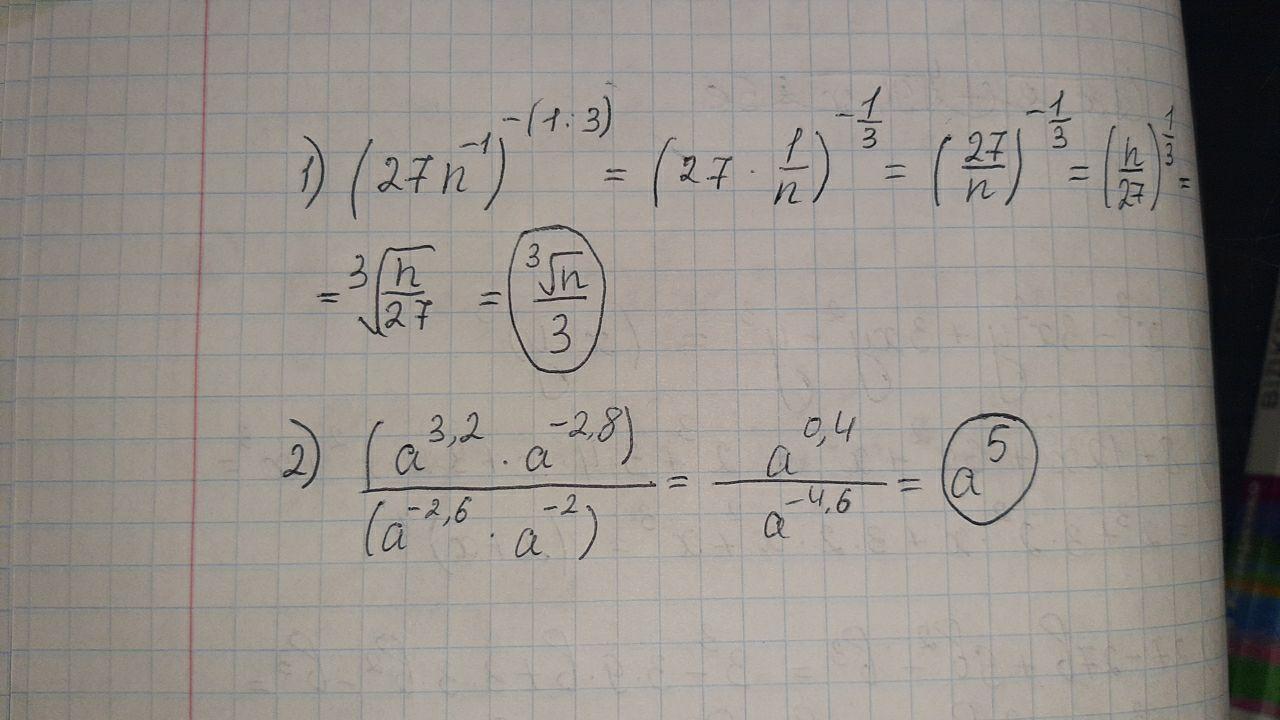 1) (27n⁻¹)^-(1:3) = (27 · 1/n)^-1/3 = (27/n)^-1/3 = (n/27)^1/3 =
= ³√(n/27) = ³√n/3
2) (a^3,2 · a^-2,8)/(a^-2,6 · a^-2) = a^0,4/a^-4,6 = a^5